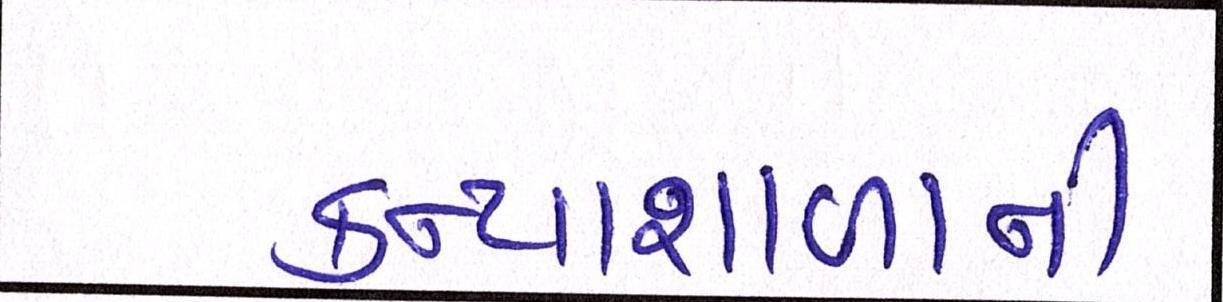 કન્યાશાળાની